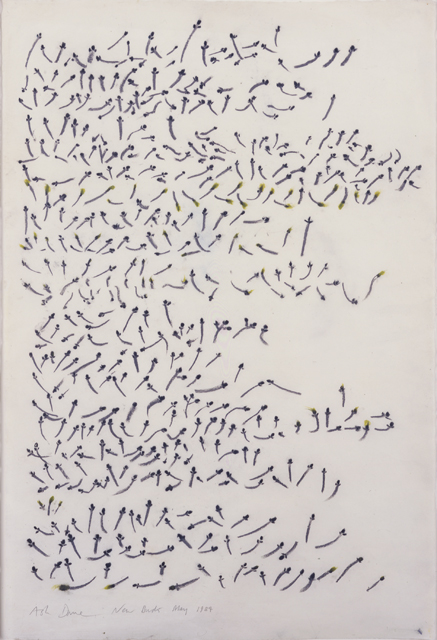 Ash Dome New Buds May 1989